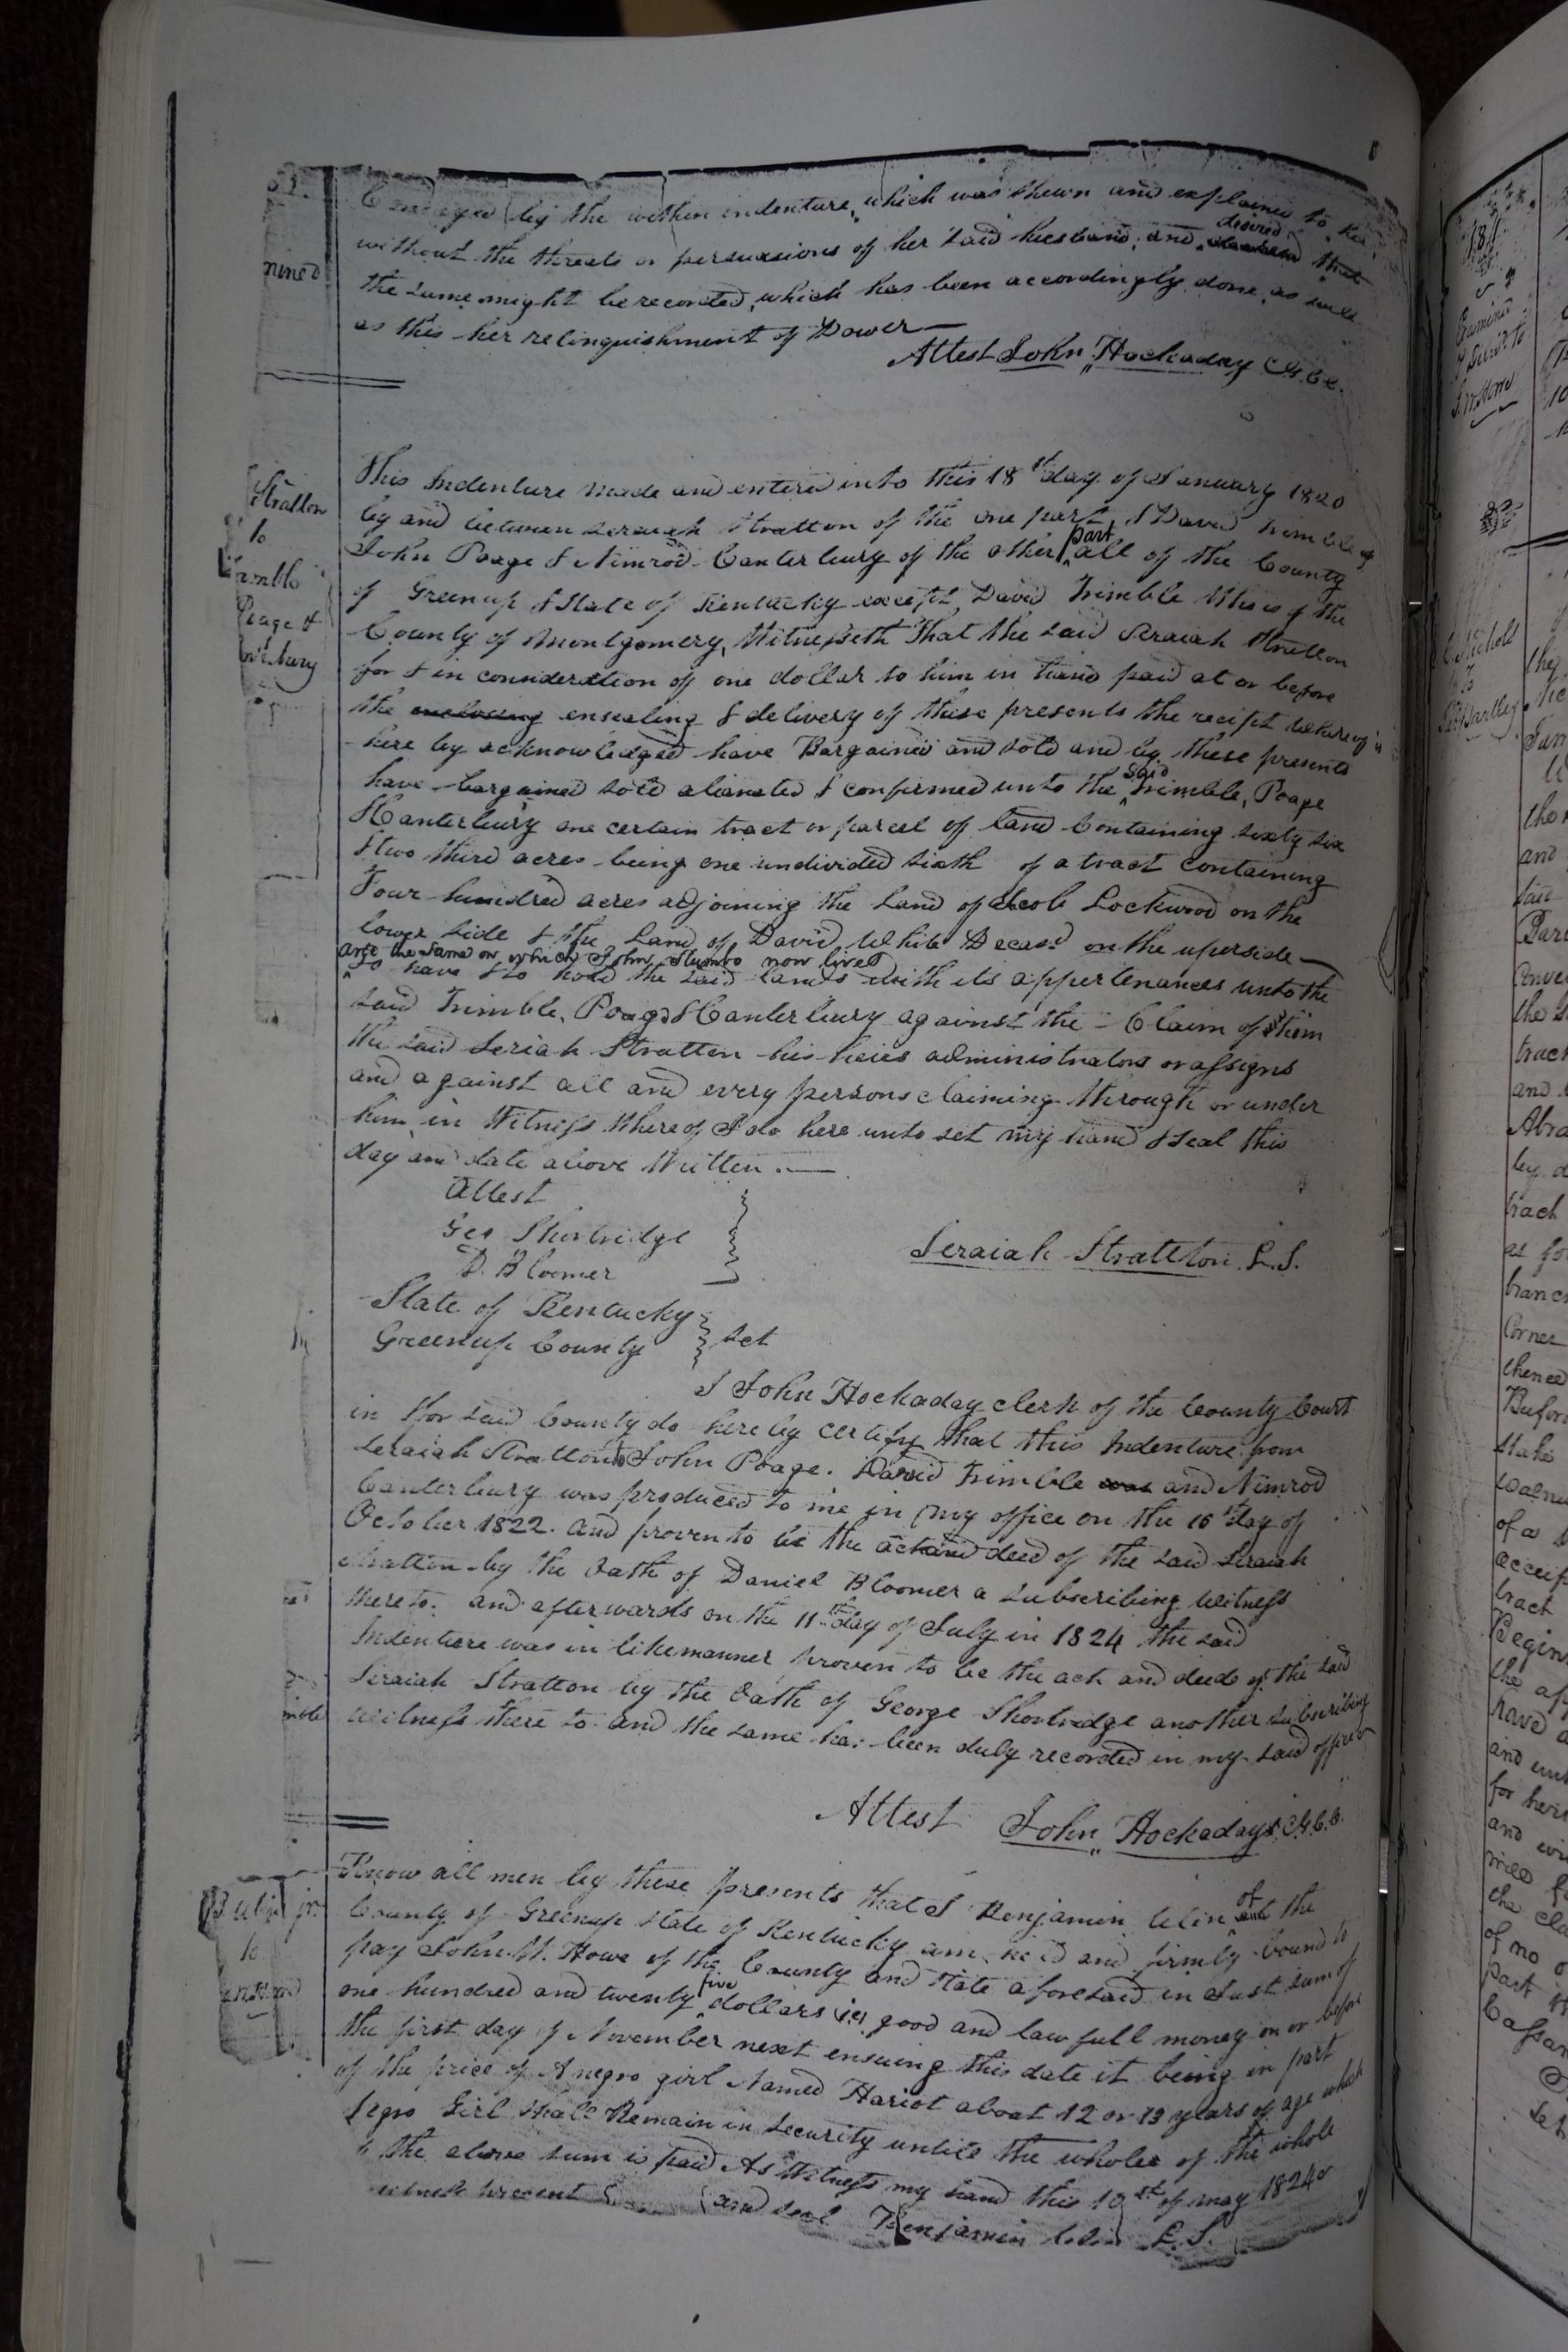 Conveyed by the within indenture, which was shewn and explained to her
without the threats or persuasions of her said husband, and desired that
the same might be recorded, which has been accordingly done, as well
as this her relinquishment of Dower —
Attest John Hockaday C.G.C.C.
nined
Stratton
to
Trimble
Poage &
This Indenture made and entered into this 18st day of January 1820
by and between Seraiah Stratton of the one part, & David Trimble
John Poage & Nimrod Canterbury of the other part all of the County
of Greenup & State of Kentucky except, David Trimble who is of the
County of Montgomery, Witnesseth That the said Seraiah Stratton
for & in consideration of one dollar to him in hand paid at or before
the enclosing ensealing & delivery of these presents the recipt whereof is
here by acknowledged have Bargained and sold and by these presents
have bargained sold alianated & confirmed unto the said Trimble, Poage
& Canterbury one certain tract or parcel of land Containing sixty six
& two third acres being one undivided sixth of a tract containing
Four hundred acres adjoining the Land of Jacob Lockwood on the
lower side & the Land of David White Decasd on the uperside —
and the same on which John Stumbo now lives
To have & to hold the said lands with its appertenances unto the
said Trimble, Poage & Canterbury against the Claim of him
the said Seriah Stratton his heirs administrators or assigns
and against all and every persons claiming through or under
him, in Witness Whereof I do here unto set my hand & seal this
day and date above Written. —
Attest
Geo Shortridge
D. Bloomer
Seraiah Strattton L.S.
State of Kentucky
Greenup County
Sct
I John Hockaday clerk of the County Court
in & for said County do hereby certify that this Indenture from
Seraiah Stratton to John Poage. David Trimble was and Nimrod
Canterbury was produced to me in my office on the 16th day of
October 1822. and proven to be the act and deed of the said Seraiah
Stratton by the Oath of Daniel Bloomer a subscribing witness
thereto. and afterwards on the 11th day of July in 1824 the said
Indenture was in likemanner proven to be the act and deed of the said
Seraiah Stratton by the Oath of George Shortridge another subscribing
witness there to. and the same has been duly recorded in my said office
Attest John Hockaday C.G.C.C.
jr.
to
Know all men by these presents that I Benjamin Ulin of the
County of Greenup state of Kentucky am held and firmly bound to
pay John W. Howe of the County and state aforesaid in Just sum of
one hundred and twenty five dollars good and lawfull money on or before
the first day of November next ensuing this date it being in part
of the price of A negro girl Named Hariot about 12 or 13 years of age which
Negro Girl shall Remain in security untill the whole of the whole
of the above sum is paid As Witness my hand this 10th of may 1824
witness present and seal Benjamin Ulin L.S.
Examined
Nichols
To
Hartley
the
and
Conve
the
trac
and
Abra
by
trach
as fo
branc
Corner
thence
Bufor
Stake
of a
accep
tract
Begin
the
have a
and
for heir
and
the cla
of no
part
Cassan